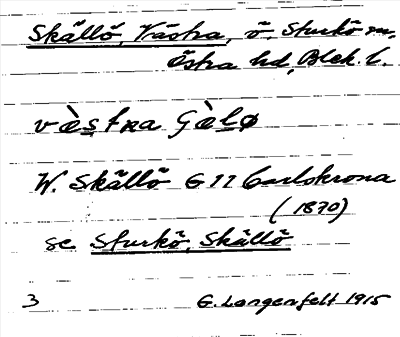 Skällö, Västra, ö. Sturkö sn,
Östra hd, Blek. l.
vὲstra
W. Skällö G 77 Carlskrona
(1870)
se Sturkö, Skällö
3 G. Langenfelt 1915